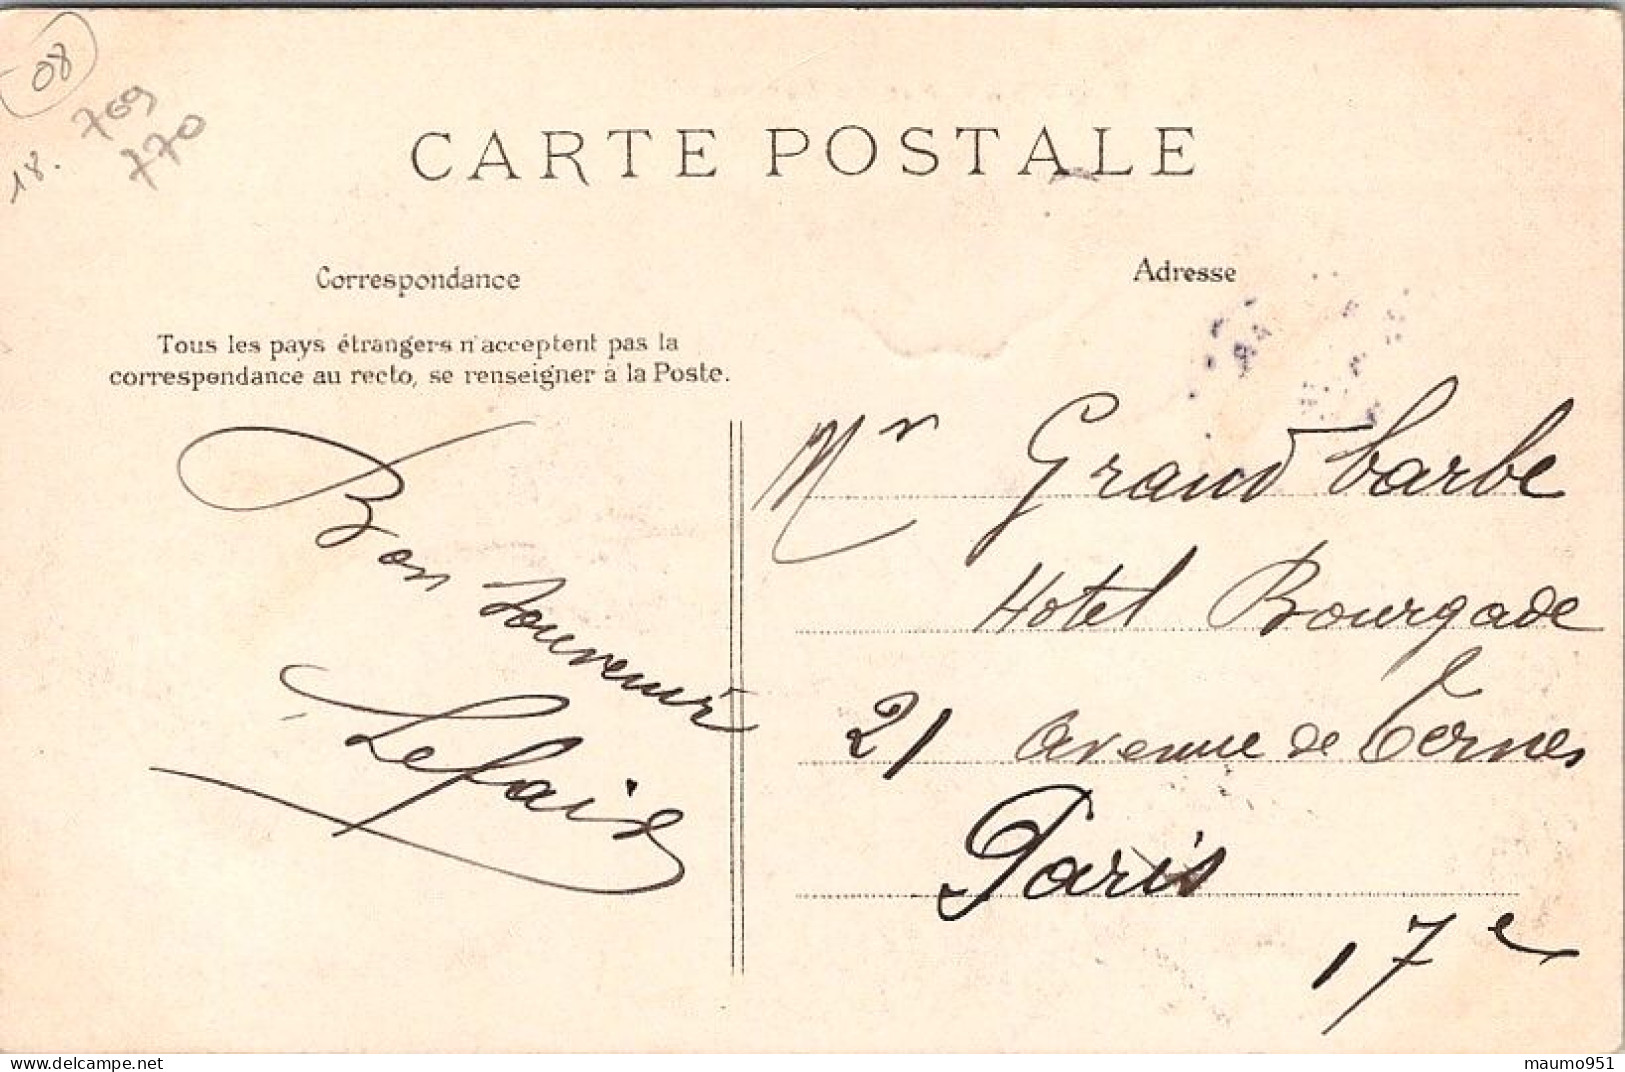 08
18. 709
770
CARTE POSTALE
Correspondance
Adresse
Tous les pays étrangers n'acceptent pas la
correspondance au recto, se renseigner à la Poste.
Bon souvenir
Mr Grandbarbe
Hotel Bourgade
21 avenue de Ternes
Paris
17e
delcampe.net
maumo951